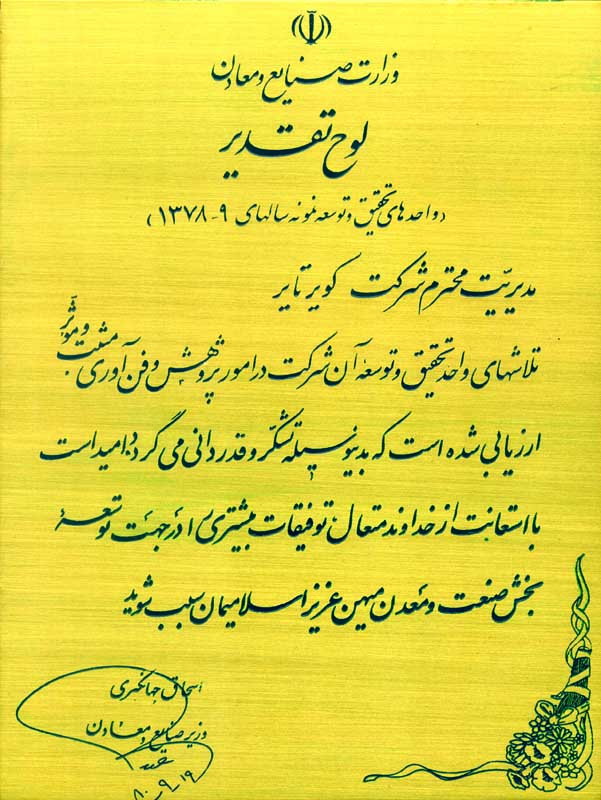 وزارت صنایع و معادن
لوح تقدیر
(واحدهای تحقیق و توسعه نمونه سالهای ۹-۱۳۷۸)
مدیریّت محترم شرکت کویر تایر
تلاشهای واحد تحقیق و توسعهٔ آن شرکت در امور پژوهش و فن آوری مثبت و مؤثّر
ارزیابی شده است که بدینوسیله تشکّر و قدردانی می گردد امید است
با استعانت از خداوند متعال توفیقات بیشتری را در جهت توسعهٔ
بخش صنعت و معدن میهن عزیز اسلامیمان سبب شوید
اسحاق جهانگیری
وزیر صنایع و معادن
۸۰-۹-۱۹